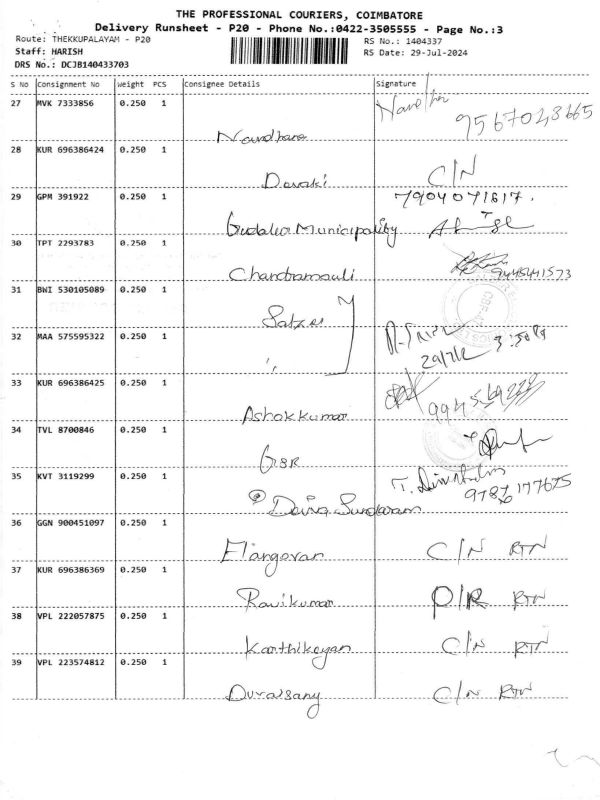 THE PROFESSIONAL COURIERS, COIMBATORE
Delivery Runsheet - P20 - Phone No.:0422-3505555 - Page No.:3
Route: THEKKUPALAYAM - P20
RS No.: 1404337
Staff: HARISH
RS Date: 29-Jul-2024
DRS No.: DCJB140433703
S No Consignment No Weight PCS Consignee Details Signature
27 MVK 7333856 0.250 1
9567028665
Nandhana
28 KUR 696386424 0.250 1
Devaki C/N
29 GPM 391922 0.250 1 7904071617.
Gudalur Municipality
30 TPT 2293783 0.250 1
Chandramouli 9445441573
31 BWI 530105089 0.250 1
32 MAA 575595322 0.250 1
33 KUR 696386425 0.250 1
Ashokkumar
34 TVL 8700846 0.250 1
GBR
35 KVT 3119299 0.250 1
Sundaram
36 GGN 900451097 0.250 1
Elangovan C/N RTN
37 KUR 696386369 0.250 1
Ravikumar D/R RTN
38 VPL 222057875 0.250 1
Karthikeyan C/N RTN
39 VPL 223574812 0.250 1
Duraisany C/N RTN